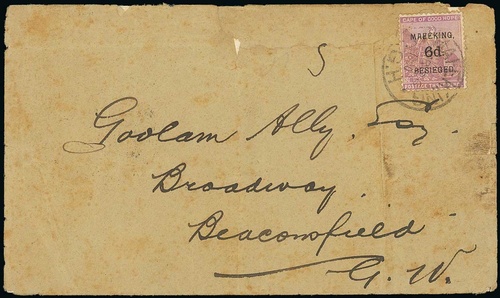 CAPE OF GOOD HOPE
MAFEKING,
6d.
BESIEGED.
5
Goolam Ally. Esqr.
Broadway.
Beaconsfield
G. W.